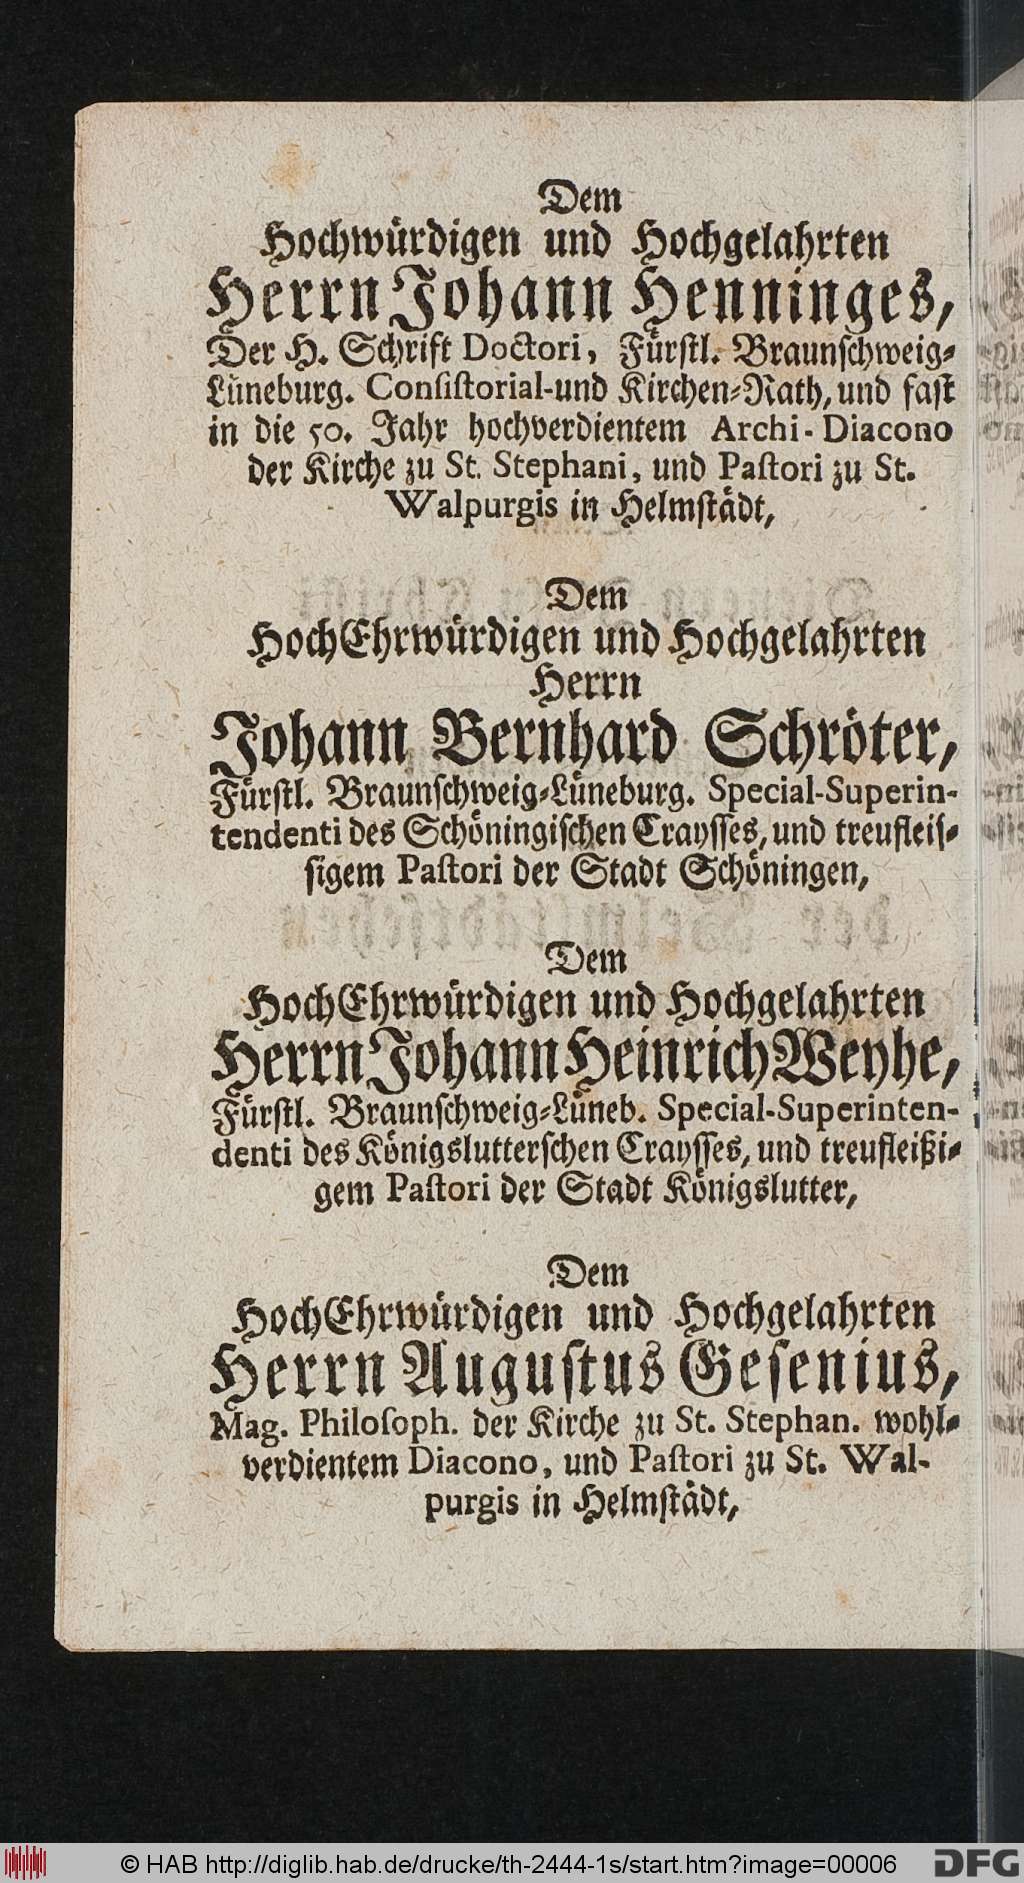 Dem
Hochwürdigen und Hochgelahrten
Herrn Johann Henninges,
Der H. Schrift Doctori, Fürstl. Braunschweig-
Lüneburg. Consistorial-und Kirchen-Rath, und fast
in die 50. Jahr hochverdientem Archi-Diacono
der Kirche zu St. Stephani, und Pastori zu St.
Walpurgis in Helmstädt,
Dem
HochEhrwürdigen und Hochgelahrten
Herrn
Johann Bernhard Schröter,
Fürstl. Braunschweig-Lüneburg. Special-Superin-
tendenti des Schöningischen Craysses, und treufleis-
sigem Pastori der Stadt Schöningen,
Dem
HochEhrwürdigen und Hochgelahrten
Herrn Johann Heinrich Weyhe,
Fürstl. Braunschweig-Lüneb. Special-Superinten-
denti des Königslutterschen Craysses, und treufleißi-
gem Pastori der Stadt Königslutter,
Dem
HochEhrwürdigen und Hochgelahrten
Herrn Augustus Gesenius,
Mag. Philosoph. der Kirche zu St. Stephan. wohl-
verdientem Diacono, und Pastori zu St. Wal-
purgis in Helmstädt,
© HAB http://diglib.hab.de/drucke/th-2444-1s/start.htm?image=00006
DFG